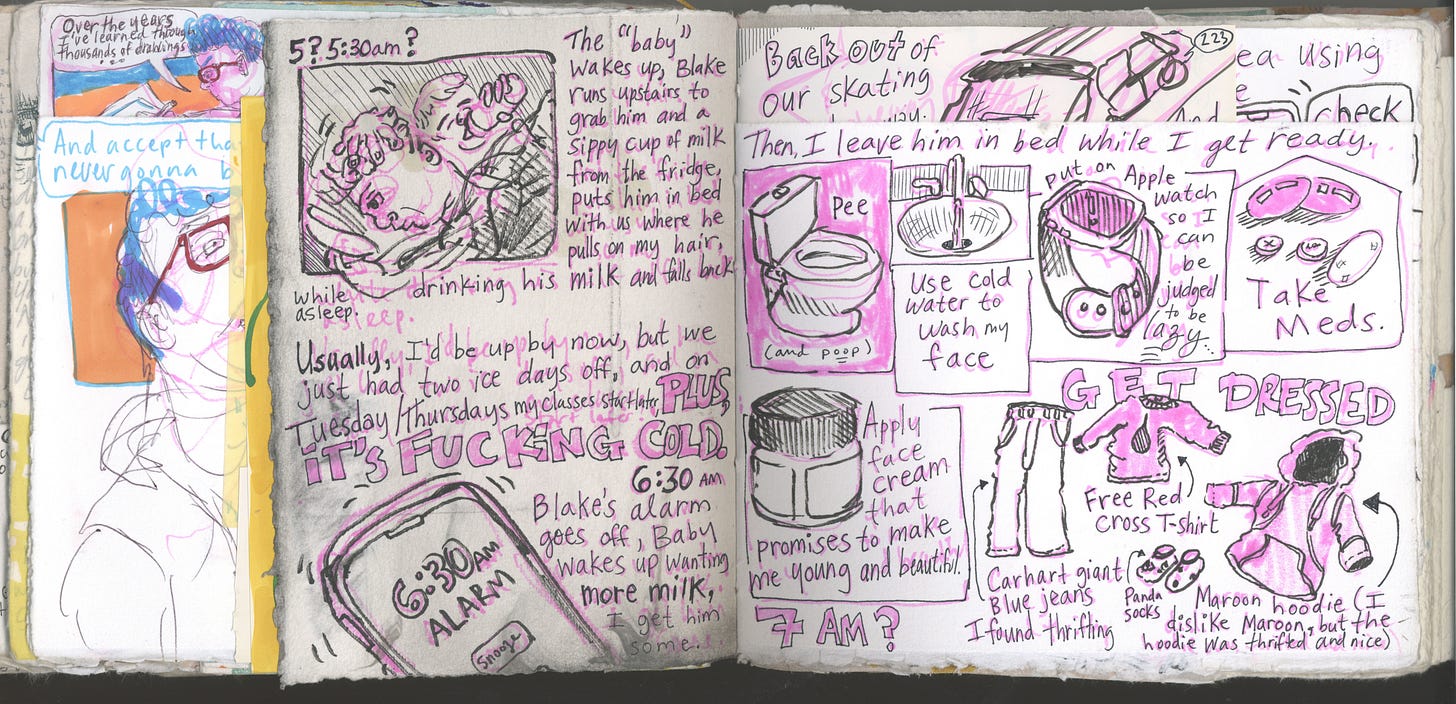 Over the years
I've learned through
thousands of drawings
And accept tha
never gonna b
5? 5:30am?
The "baby"
wakes up, Blake
runs upstairs to
grab him and a
sippy cup of milk
from the fridge,
puts him in bed
with us where he
pulls on my hair,
while drinking his milk and falls back
asleep.
Usually, I'd be up by now, but we
just had two ice days off, and on
Tuesday/Thursdays my classes start later, PLUS,
IT'S FUCKING COLD.
6:30 AM
Blake's alarm
goes off, Baby
wakes up wanting
more milk,
I get him
some.
6:30 AM
ALARM
Snooze
Back out of
our skating
223
And
ea using
e
check
Then, I leave him in bed while I get ready.
Pee
(and poop)
Use cold
water to
wash my
face
put on Apple
watch
so I
can
be
judged
to be
lazy...
Take
Meds.
Apply
face
cream
that
promises to make
me young and beautiful.
7 AM?
GET DRESSED
Free Red
Cross T-shirt
Carhart giant
Blue jeans
I found thrifting
Panda
socks
Maroon hoodie (I
dislike Maroon, but the
hoodie was thrifted and nice)